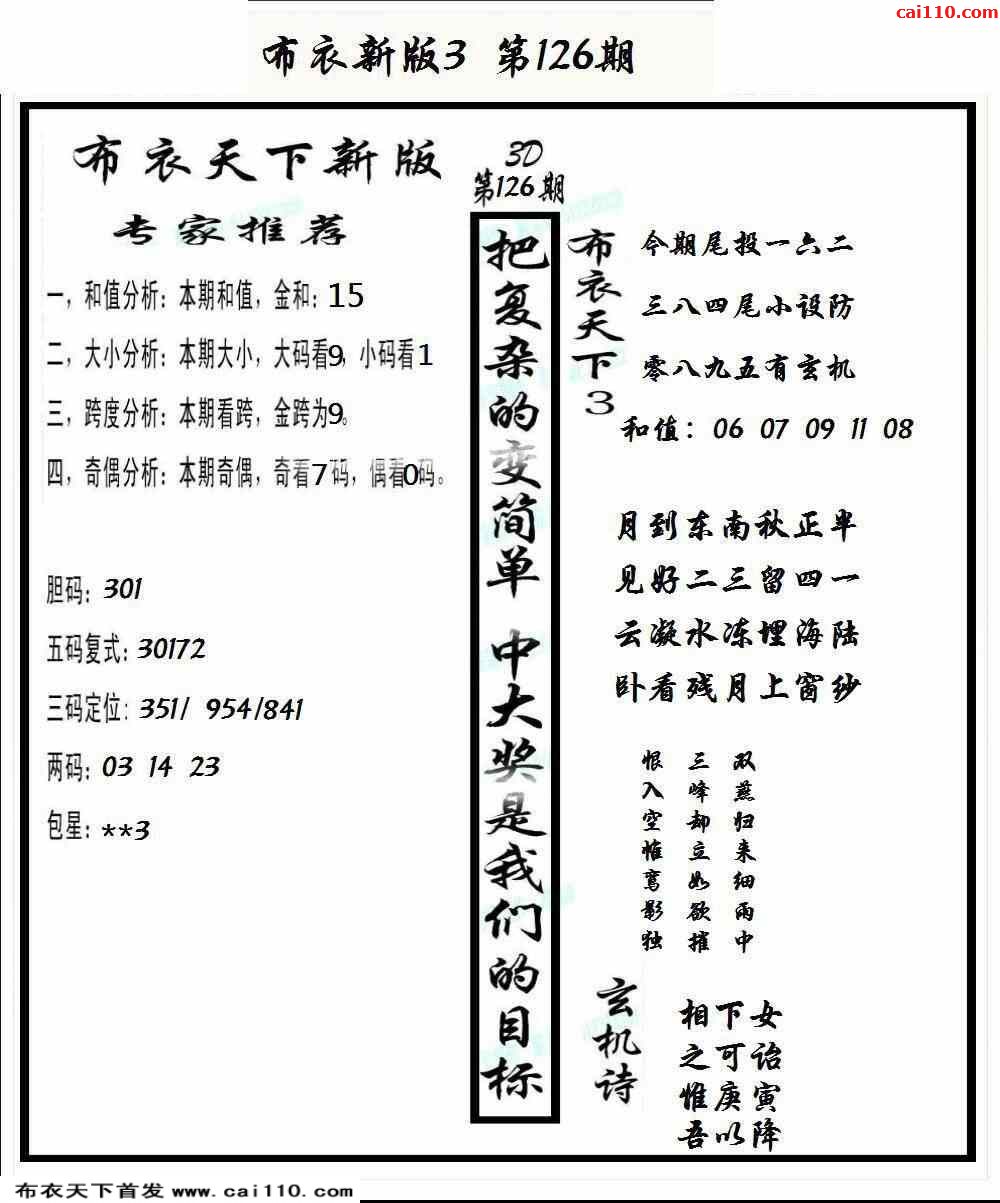 cai110.com
布衣新版3 第126期
布衣天下新版
专家推荐
一，和值分析：本期和值，金和：15
二，大小分析：本期大小，大码看9，小码看1
三，跨度分析：本期看跨，金跨为9。
四，奇偶分析：本期奇偶，奇看7码，偶看0码。
胆码：301
五码复式：30172
三码定位：351/ 954/841
两码：03 14 23
包星：**3
3D
第126期
把复杂的变简单 中大奖是我们的目标
布衣天下3
今期尾投一六二
三八四尾小设防
零八九五有玄机
和值：06 07 09 11 08
月到东南秋正半
见好二三留四一
云凝水冻埋海陆
卧看残月上窗纱
双燕归来细雨中
三峰却立如欲摧
恨入空帷鸾影独
玄机诗
相下女
之可诒
惟庚寅
吾以降
布衣天下首发 www.cai110.com